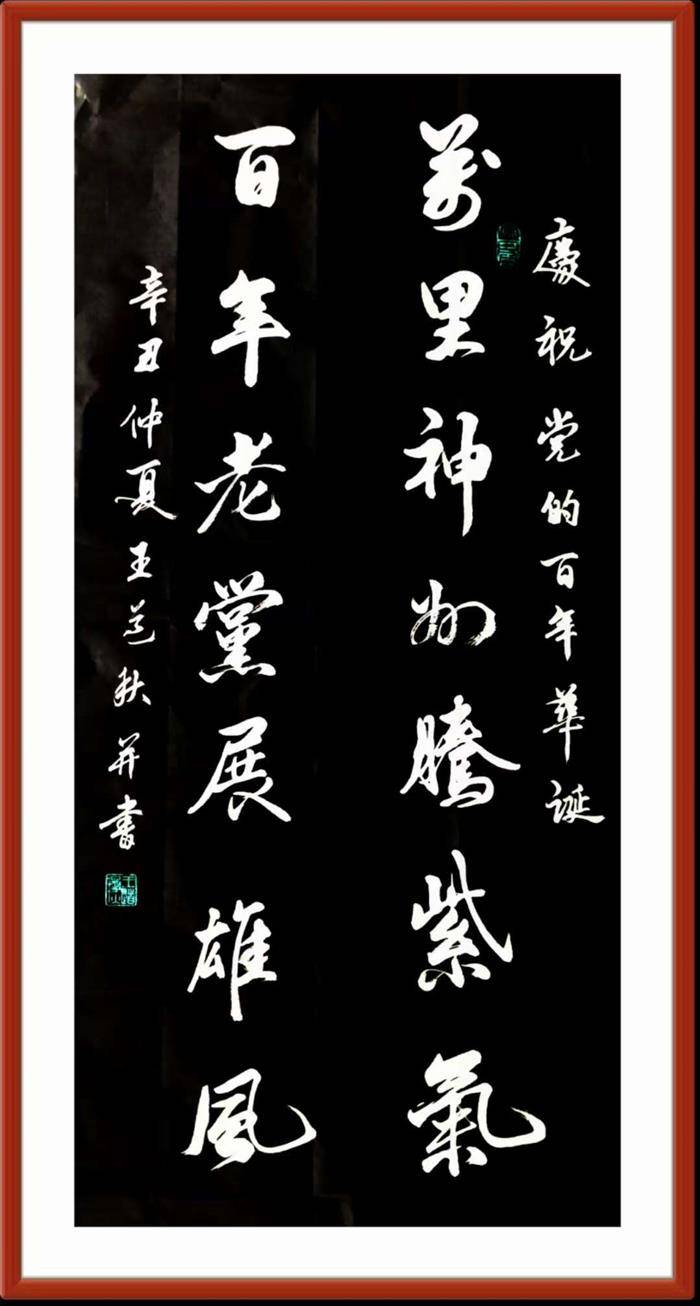 慶祝党的百年華誕
萬里神州騰紫氣
百年老黨展雄風
辛丑仲夏王道秋并書